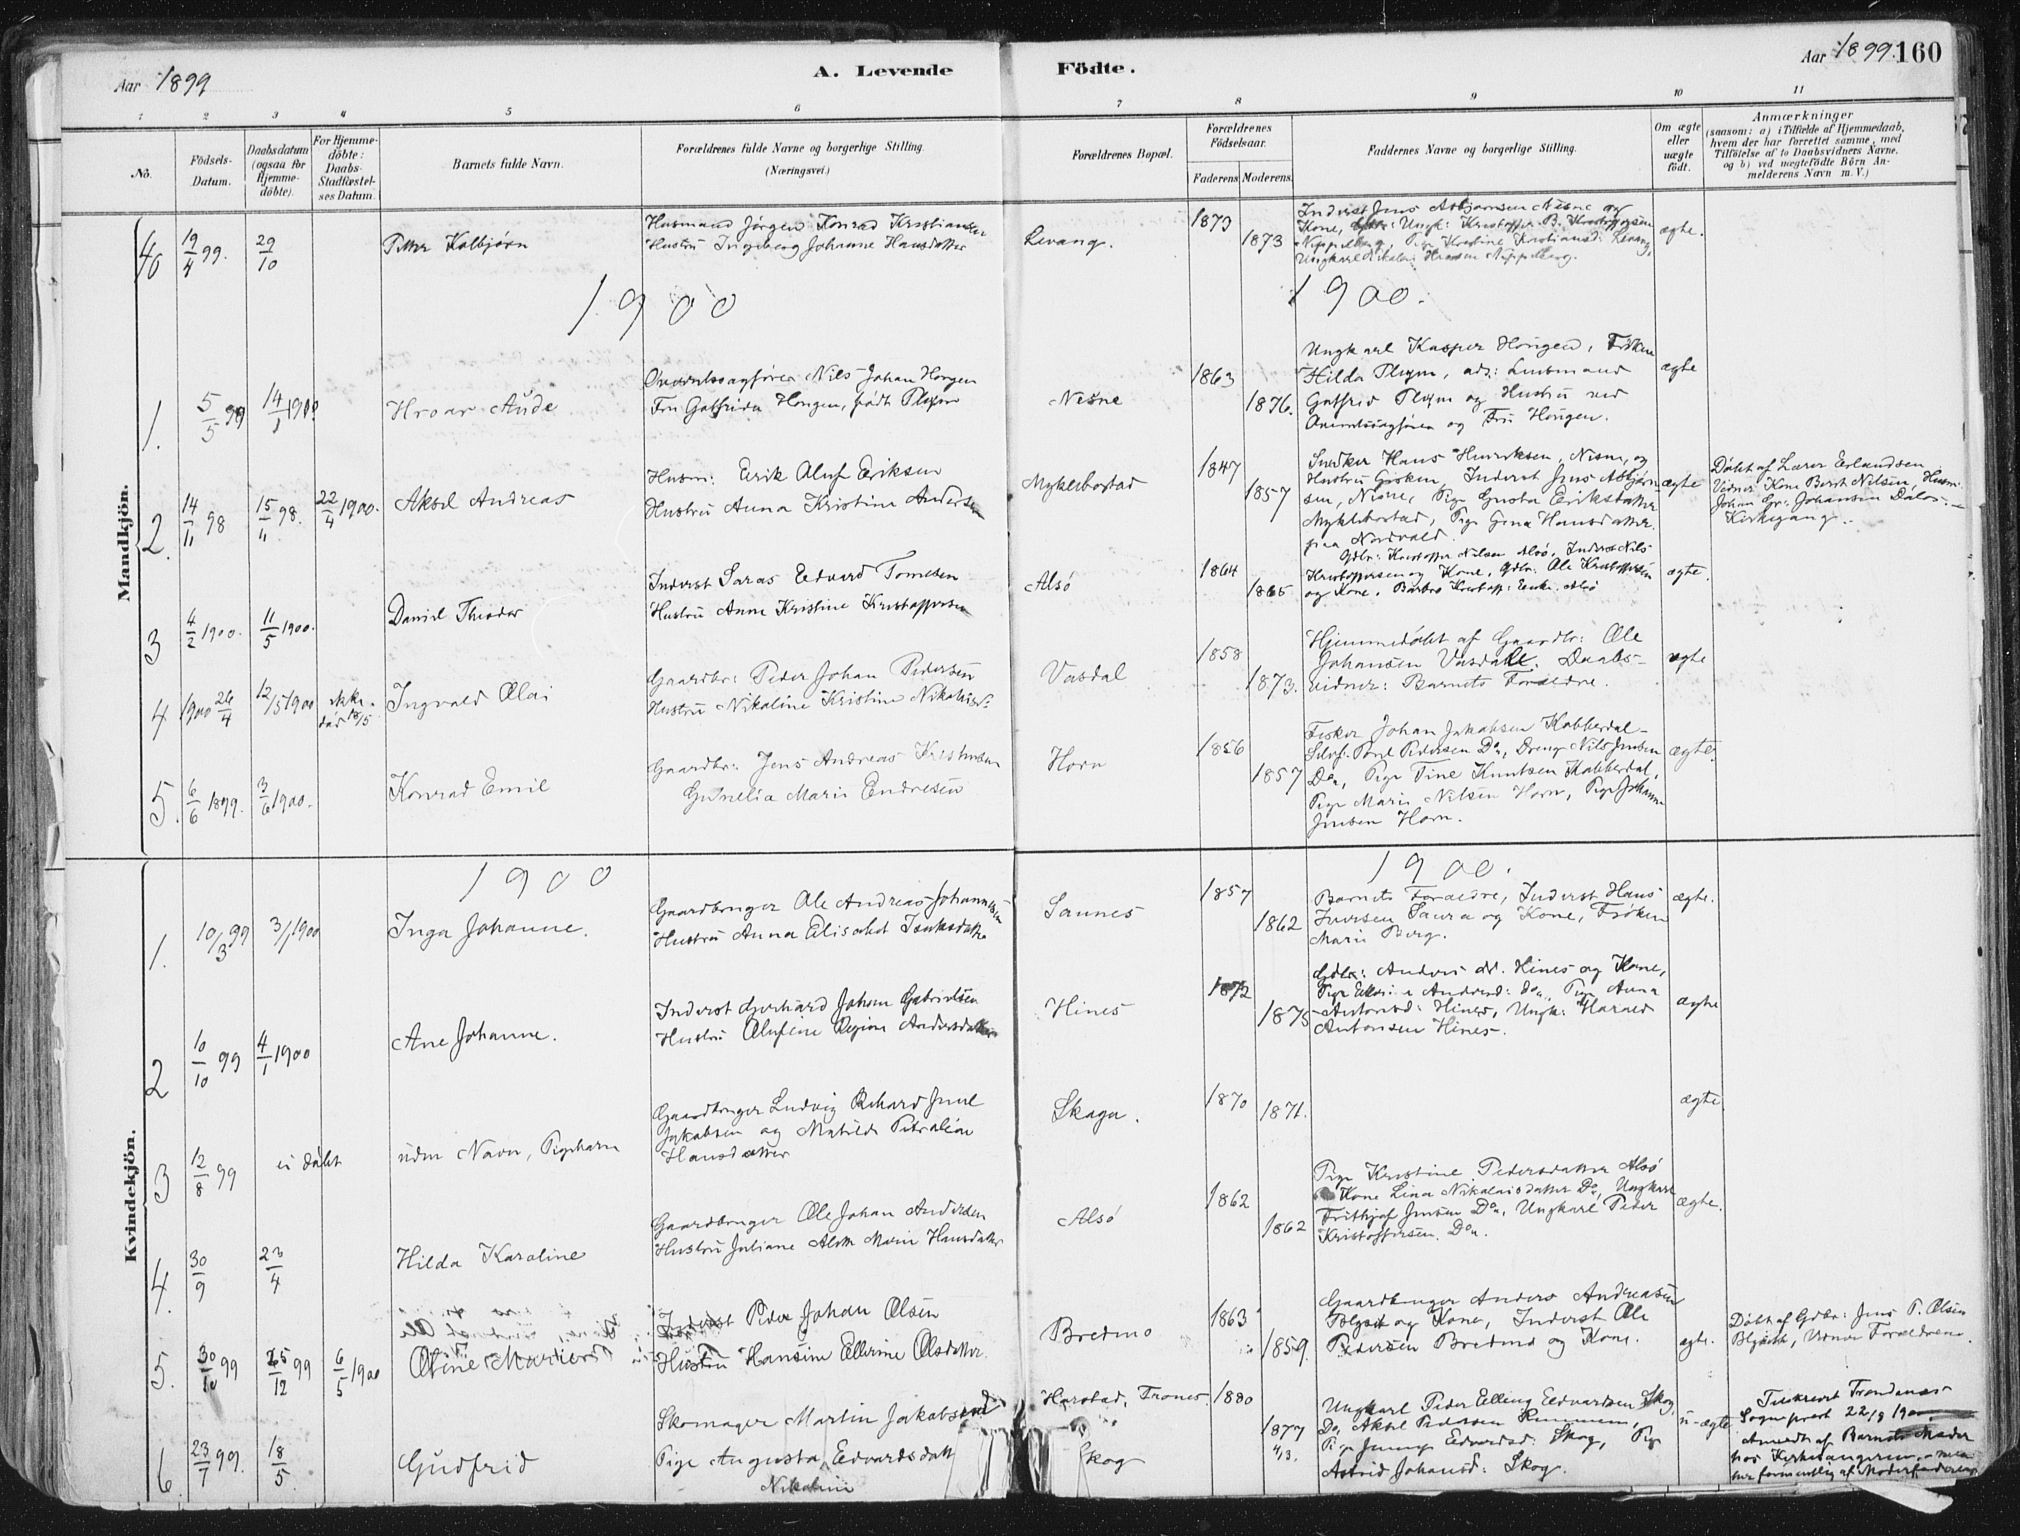 Aar 1899
A. Levende
Födte.
Aar 1899. 160
1 2 3 4 5 6 7 8 9 10 11
No.
Födsels-
Datum.
Daabsdatum
(ogsaa for
Hjemme-
döbte).
For Hjemme-
döbte:
Daabs-
Stadfæstel-
ses Datum.
Barnets fulde Navn.
Forældrenes fulde Navne og borgerlige Stilling.
(Næringsvei.)
Forældrenes Bopæl.
Forældrenes
Födselsaar.
Faderens Moderens
Faddernes Navne og borgerlige Stilling.
Om ægte
eller
uægte
födt.
Anmærkninger
(saasom: a) i Tilfælde af Hjemmedaab,
hvem der har forrettet samme, med
Tilföielse af to Daabsvidners Navne.
og b) ved uægtefödte Börn An-
melderens Navn m. V.)
Mandkjön.
40 19/4 99. 29/10 Petter Kolbjørn
Husmand Jørgen Konrad Kristiansen
Hustru Ingeborg Johanne Hansdatter
Levang.
1873
1873
Inderst Jens Asbjørnsen Nesne og
Kone, Ungk: Kristoffer B. Kristoffersen
Pige Kristine Kristiansd: Levang,
Ungkarl Nikolai Hansen
ægte.
1900
1900.
1. 5/5 99 14/1 1900 Hroar Aude
Overretssagfører Nils Johan Horgen
Fru Gotfrida Horgen, født Plym
Nesne
1863
1876.
Ungkarl Kasper Hongen, Frøken
Hilda Plym, adr: Lensmand
Gotfrid Plym og Hustru ved
Overretssagfører og Fru Hongen.
ægte
2. 14/11 98 15/11 98. 22/4 1900. Aksel Andreas
Husm: Erik Oluf Eriksen
Hustru Anna Kristina Andersen
Myklebostad
1847
1857
Snedker Hans Henriksen, Nesne, og
Hustru Inderst Jens Asbjørn-
sen, Nesne, Pige Gusta Eriksdatter
Myklebostad, Pige Gina Hansdatter
paa Nordvald.
ægte
Døbt af Lærer Erlandsen
Vidner Kone Berit Nilsen, Husm:
Johan Gr. Johansen Dalos-
Kirkegang.
3 4/2 1900. 11/5 1900. Daniel Theodor
Inderst Saras Edvard Tomesen
Hustru Anne Kristine Kristoffersen
Alsö
1864
1865
Gdbr: Kristoffer Nilsen Alsö, Inderst Nils
Kristoffersen og Kone, Gdbr: Ole Kristoffersen
og Kone, Barbro Kristoff: Enke. Alsö
ægte.
4 1900 26/4 12/5 1900 Ingvald Olai
Gaardbr: Peder Johan Pedersen
Hustru Nikoline Kristine Nikolaisd:
Vasdal
1858
1873.
Hjemmedøbt af Gaardbr: Ole
Johansen Vasdal. Daabs-
vidner: Barnets Forældre.
ægte
5. 6/6 1899. 3/6 1900. Konrad Emil
Gaardbr: Jens Andreas Kristensen
Gunelia Marie Endresen
Horn
1856
1857
Fisker Johan Jakobsen Kobberdal-
Selvf: Pedersen Do, Dreng Nils Jensen
Do, Pige Tine Knutsen Kobberdal,
Pige Marie Nilsen Horn, Pige Johanne
Jensen Horn.
ægte.
Kvindekjön.
1900
1900.
1. 10/3 99 3/1 1900 Inga Johanne.
Gaardbruger Ole Andreas Johannesen
Hustru Anna Elisabet Isaksdatter
Saunes
1857
1862
Barnets Forældre, Inderst Hans
Iversen Saura og Kone, Frøken
Marie Berg.
ægte.
2 10/10 99 4/1 1900 Ane Johanne.
Inderst Gerhard Johan Gabrielsen
Hustru Olufine Regine Andersdatter
Hines
1872
1875
Gdbr: Anders Hines og Kone,
Pige Andersd: Do, Pige Anna
Antonsd: Hines, Ungk: Harald
Antonsen Hines.
ægte
3 12/8 99 ei døbt uden Navn, Pigebarn
Gaardbruger Ludvig Rikard Juul
Jakobsen og Matilde Petraline
Hansdatter
Skaga.
1870
1871.
ægte
4. 30/9 23/4 Hilda Karoline
Gaardbruger Ole Johan Andersen
Hustru Juliane Marie Hansdatter
Alsö
1862
1862
Pige Kristine Pedersdatter Alsö
Kone Lina Nikolaisdatter Do, Ungkarl
Frithjof Jensen Do, Ungkarl Peder
Kristoffersen Do.
ægte.
5. 30/10 99 25/12 99 6/5 1900 Oline Martine
Inderst Peder Johan Olsen
Hustru Hansine Ellerine Olsdatter
Bredmo
1863
1859.
Gaardbruger Anders Andreasen
og Kone, Inderst Ole
Pedersen Bredmo og Kone.
ægte.
Døbt af Gdbr: Jens P. Olsen
Vidner Forældrene.
6 23/7 99. 18/5 Gudfrid
Skomager Martin Jakobsen
Pige Augusta Edvardsdatt
Nikoline
Harstad, Trones.
Skog
1880
1877
4/3.
Ungkarl Peder Elling Edvardsen Skog,
Do Aksel Pedersen
Pige Jenny Edvardsd: Skog, Pige
Astrid Johansd: Skog.
u-ægte
Trondenæs
Sogneprest 22/8 1900.
Anmeldt af Barnets Moder
hos Kirkesangeren,